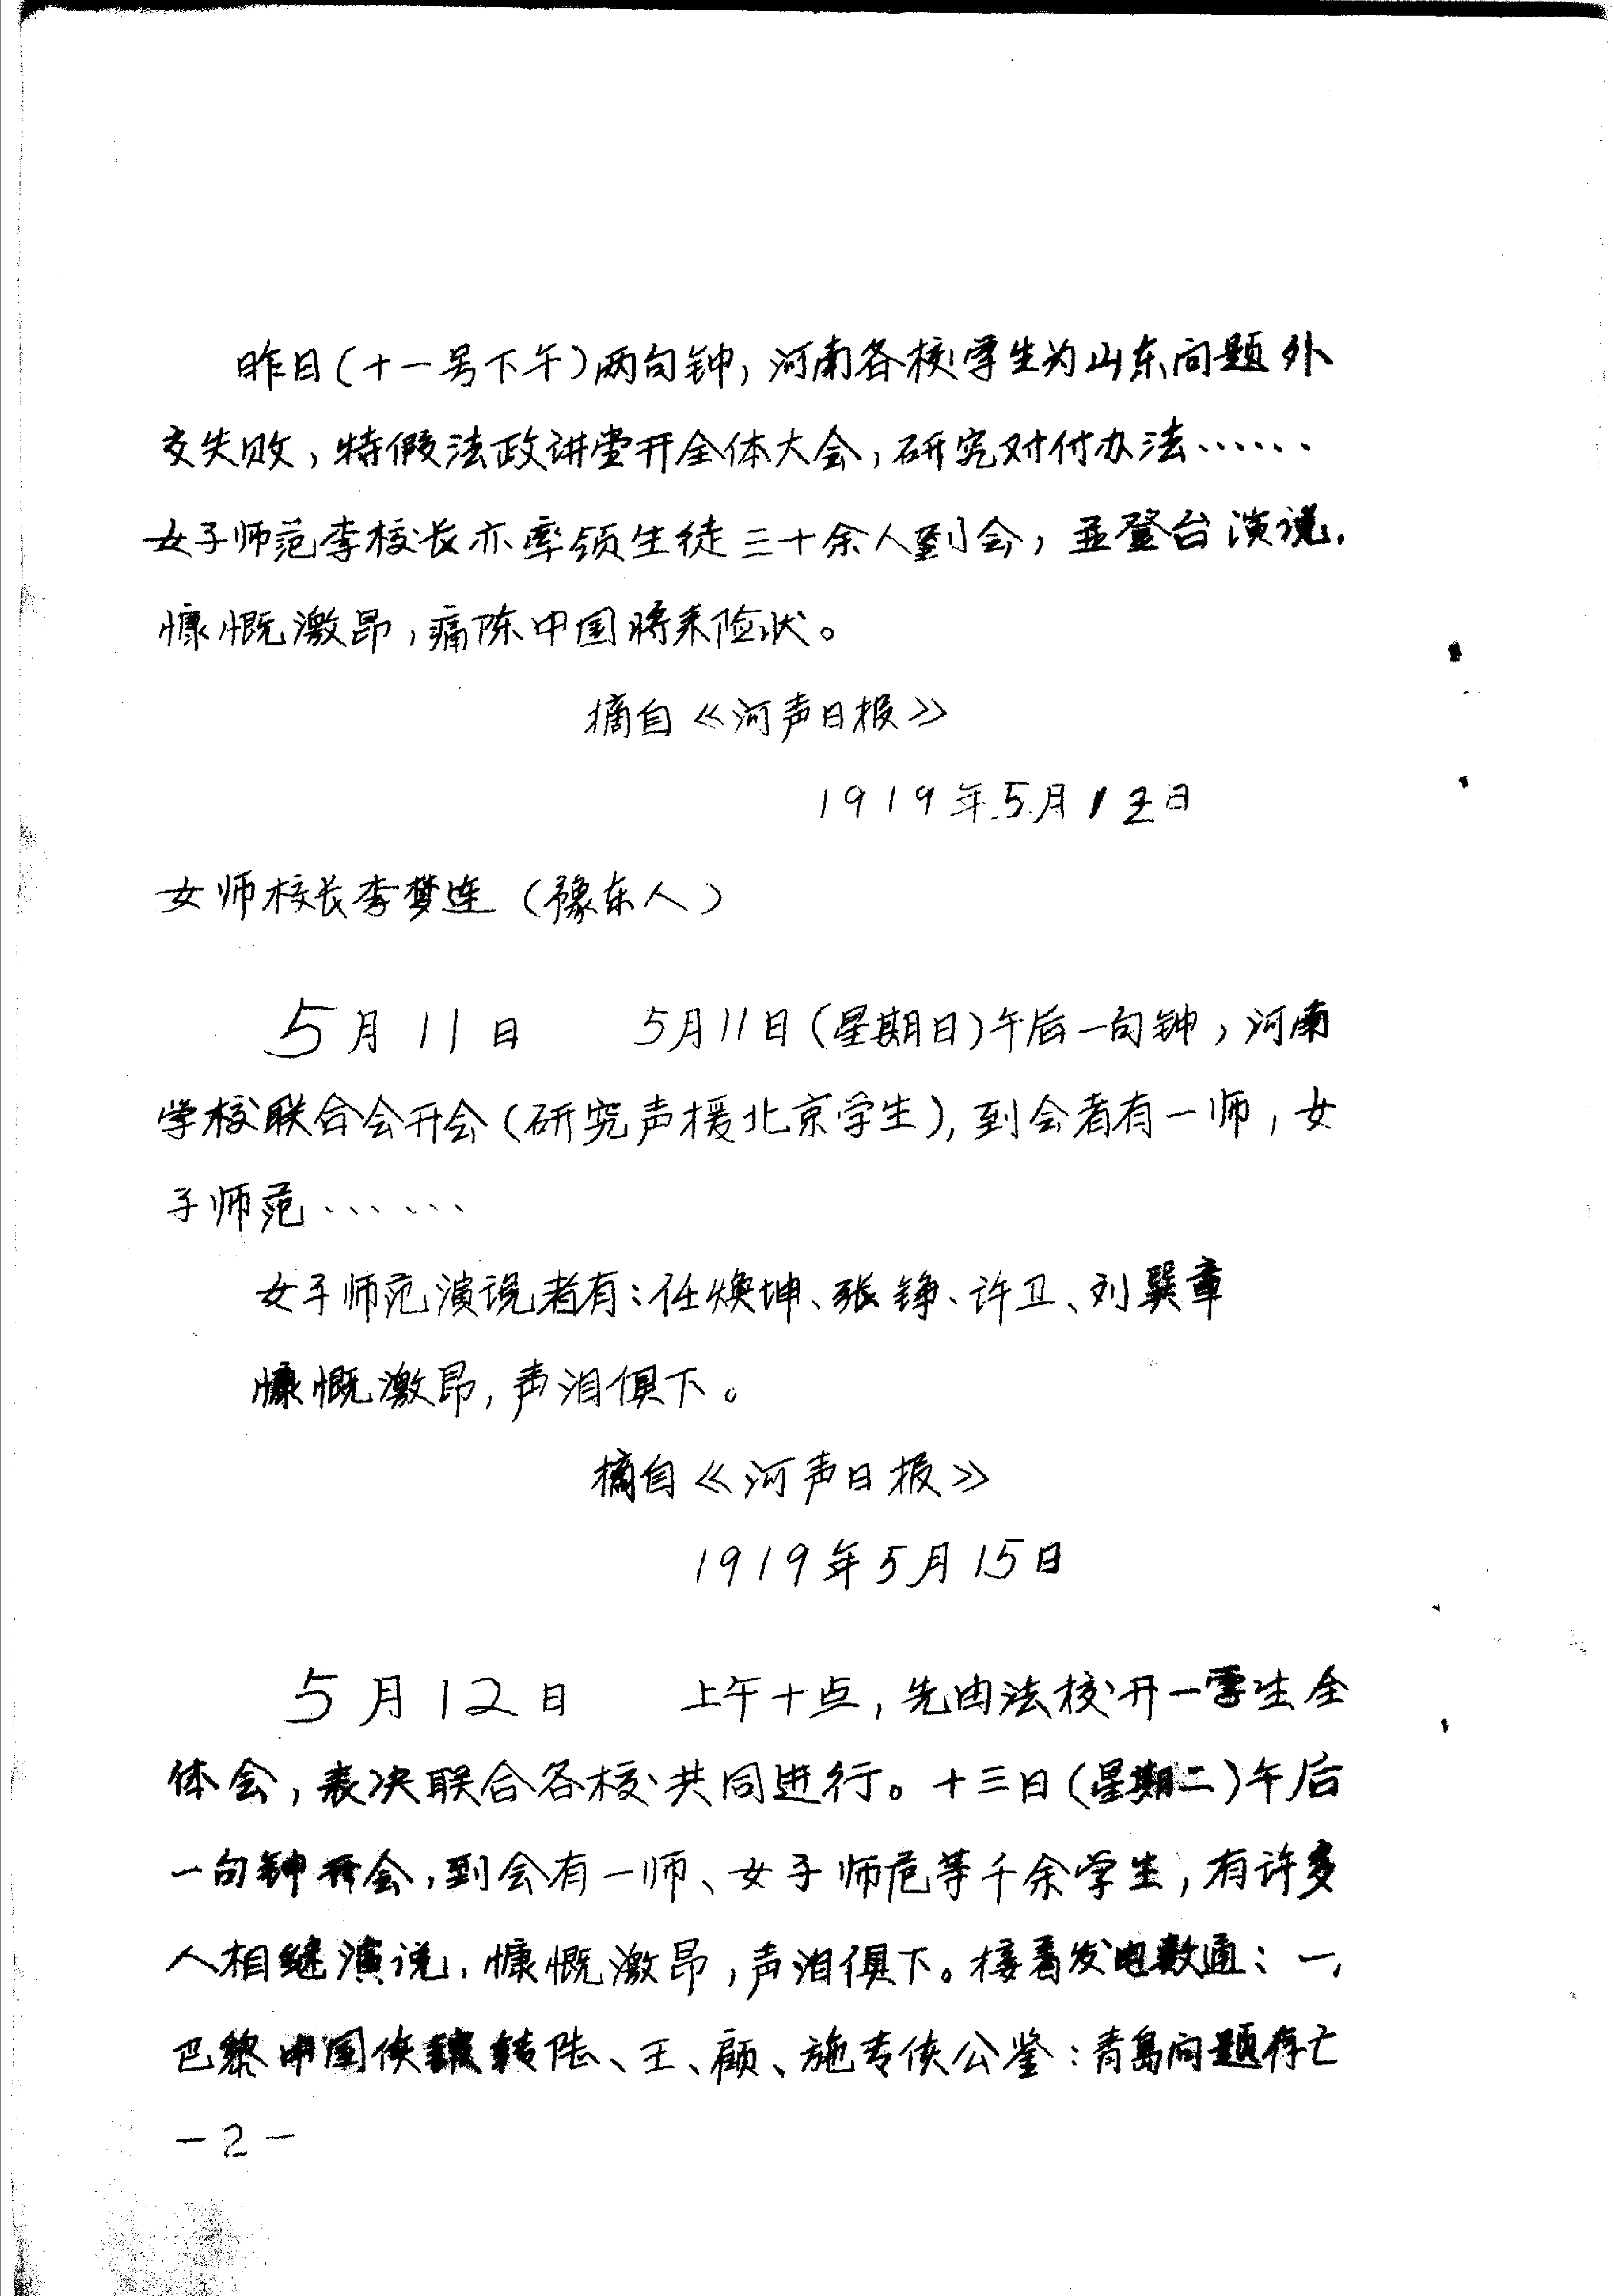 昨日(十一号下午)两句钟,河南各校学生为山东问题外
交失败,特假法政讲堂开全体大会,研究对付办法……
女子师范李校长亦率领生徒三十余人到会,并登台演说.
慷慨激昂,痛陈中国将来险状。
摘自《河声日报》
1919年5月12日
女师校长李梦莲(豫东人)
5月11日 5月11日(星期日)午后一句钟,河南
学校联合会开会(研究声援北京学生),到会者有一师,女
子师范……
女子师范演说者有:任焕坤、张铮、许卫、刘巽章
慷慨激昂,声泪俱下。
摘自《河声日报》
1919年5月15日
5月12日 上午十点,先由法校开一学生全
体会,表决联合各校共同进行。十三日(星期二)午后
一句钟开会,到会有一师、女子师范等千余学生,有许多
人相继演说.慷慨激昂,声泪俱下。接着发电数通:一,
巴黎中国使馆转陆、王、顾、施专使公鉴:青岛问题存亡
-2-